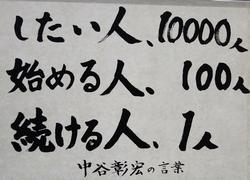 したい人、10000人
始める人、100人
続ける人、1人
中谷彰宏の言葉